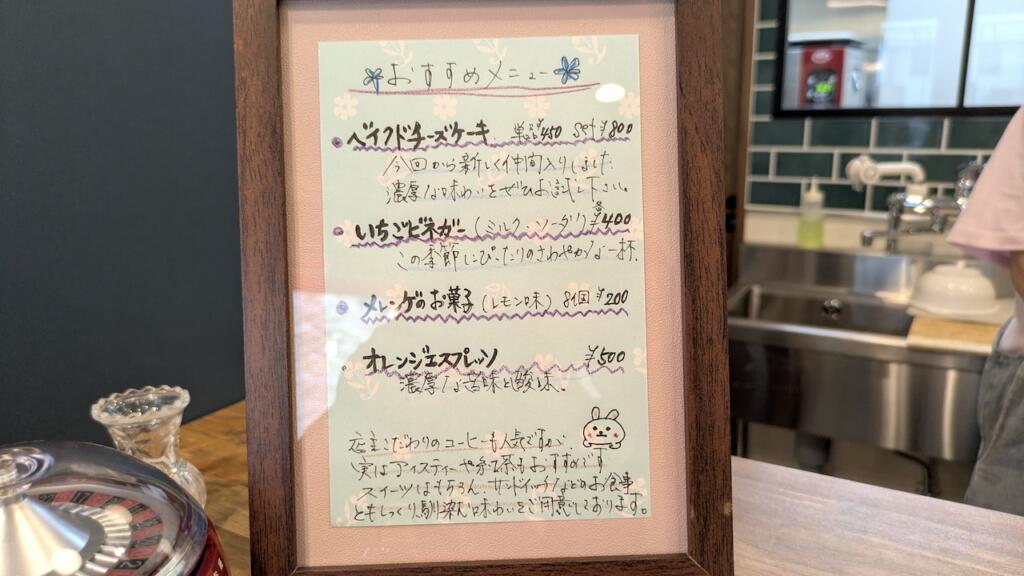 おすすめメニュー
ベイクドチーズケーキ 単品¥450 Set¥800
今回から新しく仲間入りしました
濃厚な味わいをぜひお試し下さい。
いちごビネガー(ミルク・ソーダ)¥400
この季節にぴったりのさわやかな一杯.
メレンゲのお菓子(レモン味) 8個 ¥200
オレンジエスプレッソ ¥500
濃厚な苦味と酸味。
店主こだわりのコーヒーも人気ですが、
実はアイスティーや紅茶もおすすめです
スイーツはもちろん サンドイッチなどのお食事
ともしっくり馴染む味わいをご用意しております。